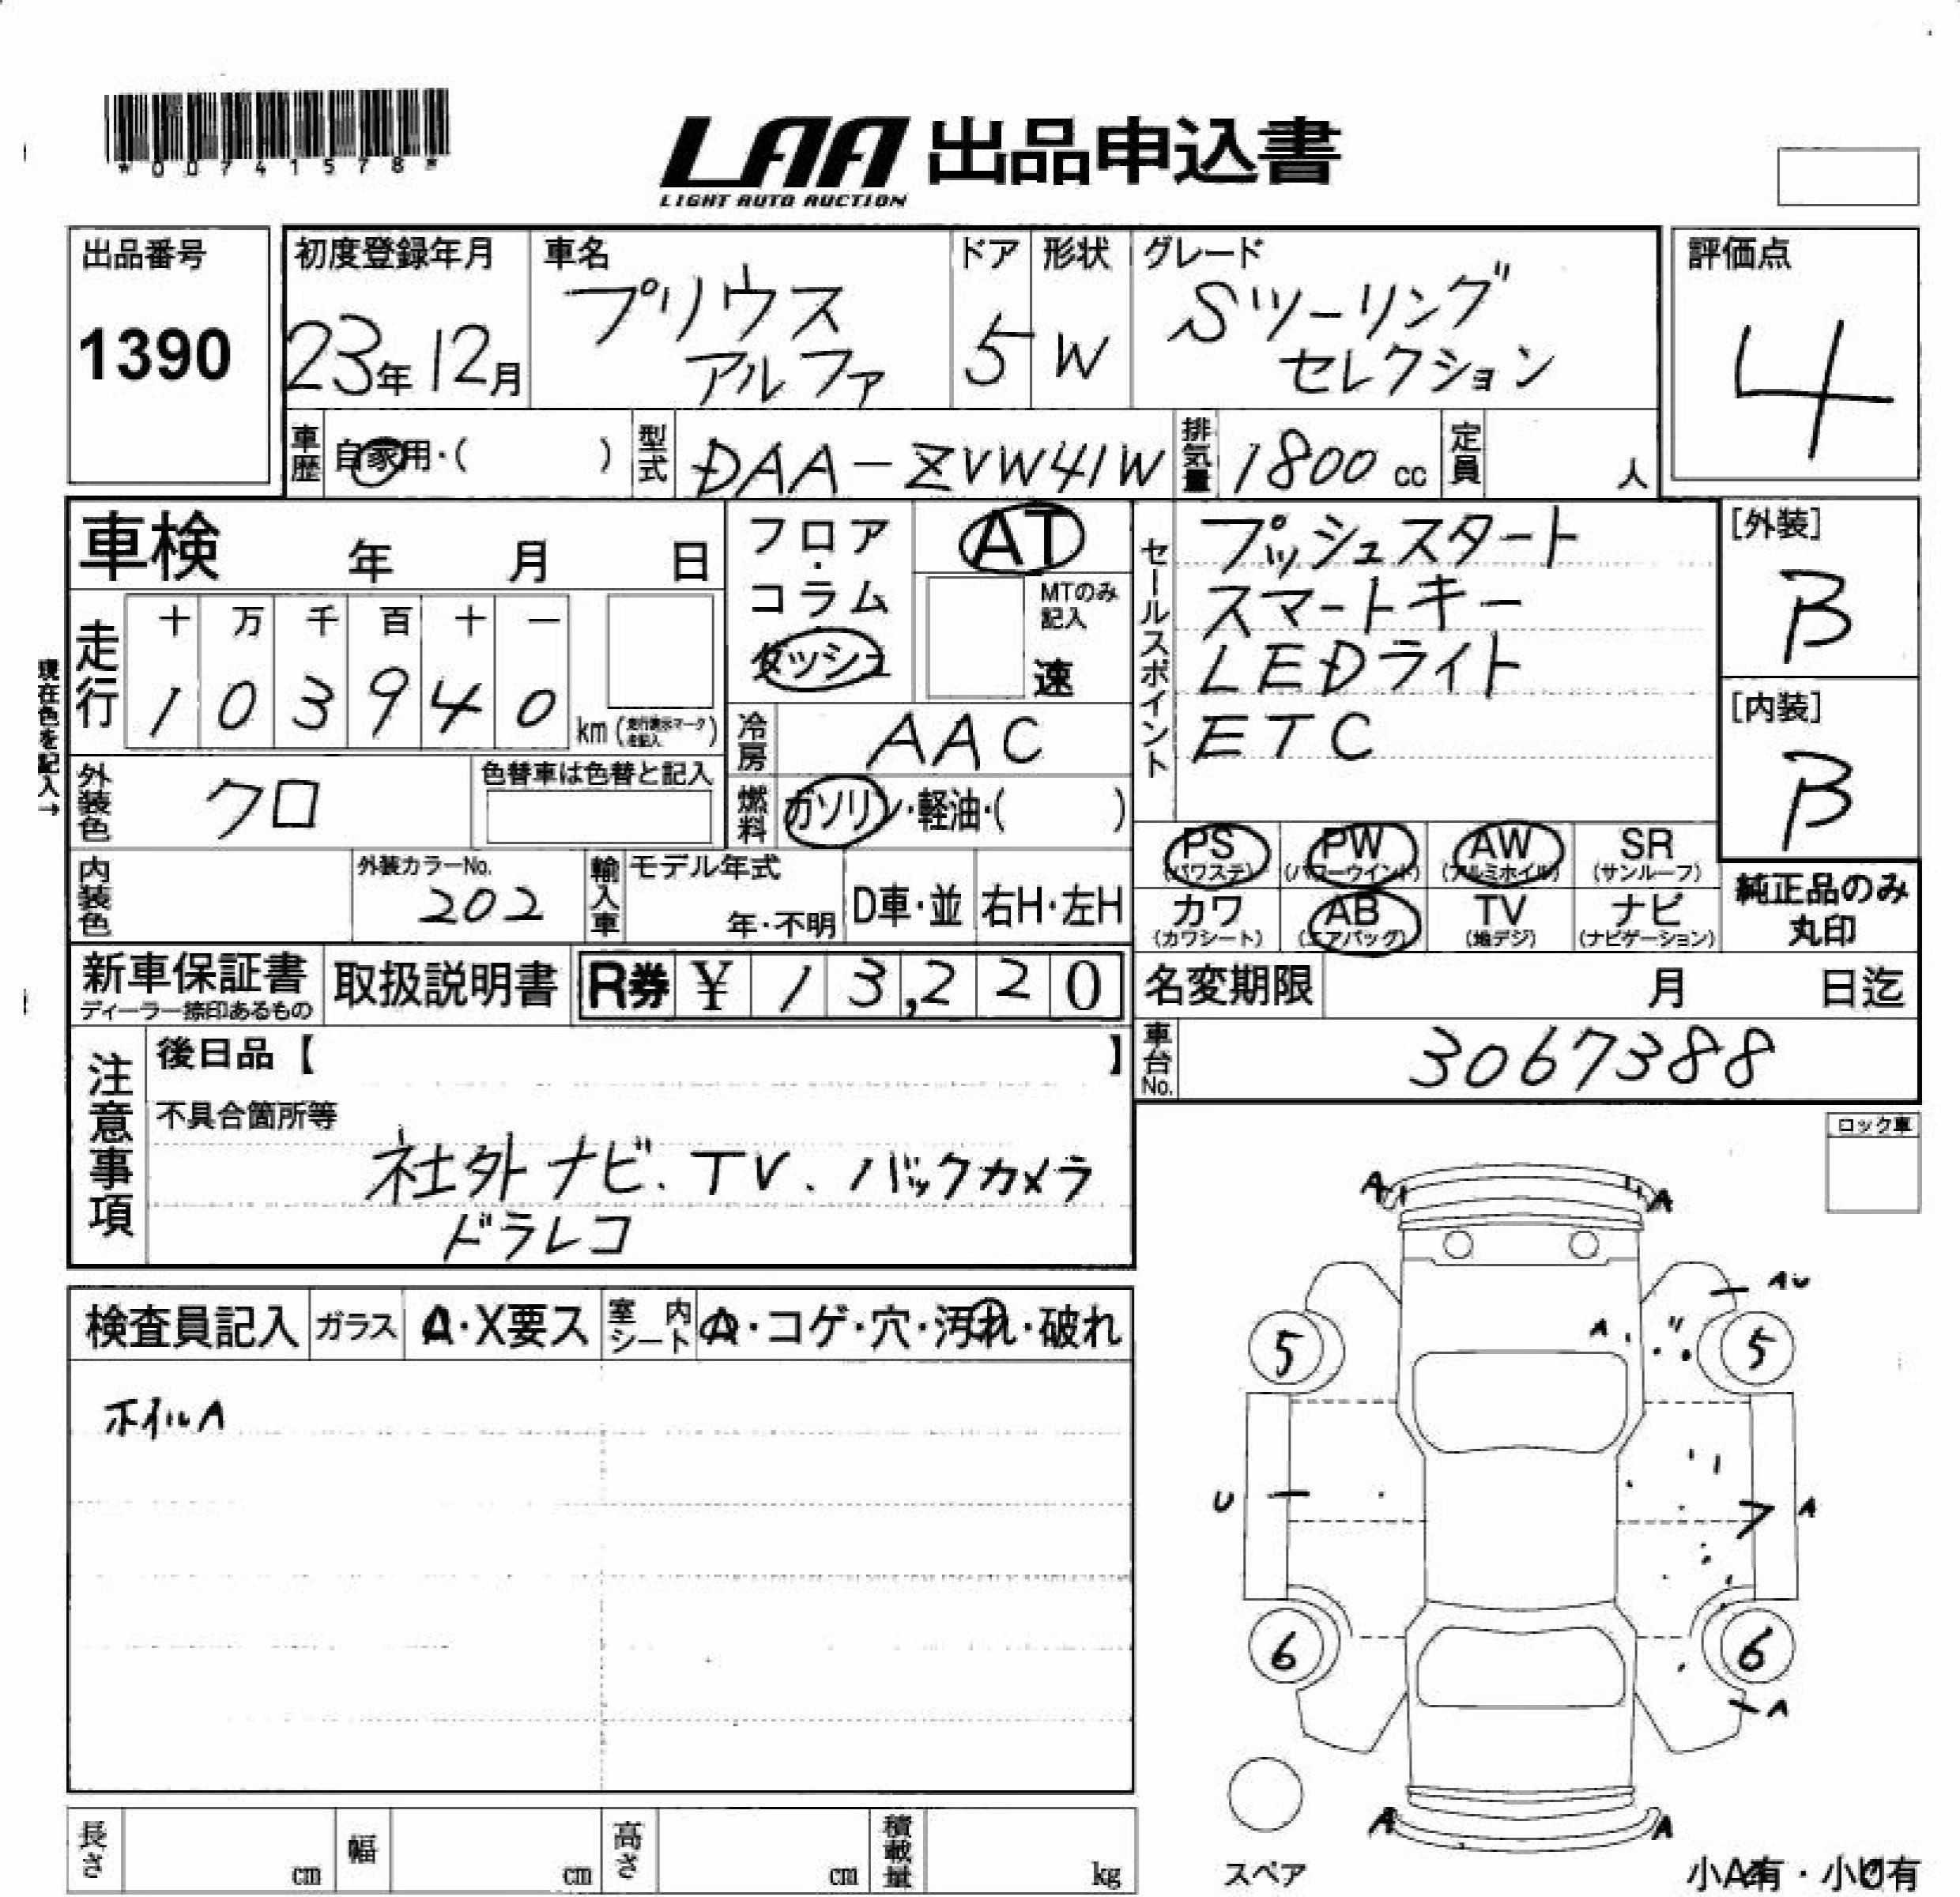 *00741578*
LAA 出品申込書
LIGHT AUTO AUCTION
出品番号
1390
初度登録年月
23年12月
車名
プリウス
アルファ
ドア
5
形状
W
グレード
Sツーリング
セレクション
評価点
4
車歴 自家用・( )
型式 DAA-ZVW41W
排気量 1800 cc
定員 人
車検 年 月 日
走行
十 万 千 百 十 一
1 0 3 9 4 0 km
現在色を記入→
外装色 クロ
色替車は色替と記入
内装色
外装カラーNo.
202
フロア・
コラム
ダッシュ
AT
MTのみ
記入
速
冷房 AAC
燃料 ガソリン・軽油・( )
輸入車 モデル年式
年・不明 D車・並 右H・左H
セールスポイント
プッシュスタート
スマートキー
LEDライト
ETC
[外装]
B
[内装]
B
PS (パワステ) PW (パワーウインド) AW (アルミホイル) SR (サンルーフ)
カワ (カワシート) AB (エアバッグ) TV (地デジ) ナビ (ナビゲーション)
純正品のみ
丸印
新車保証書
ディーラー捺印あるもの
取扱説明書
R券 ¥ 13,220
名変期限 月 日迄
車台No. 3067388
注意事項
後日品【 】
不具合箇所等
社外ナビ.TV.バックカメラ
ドラレコ
ロック車
検査員記入 ガラス A・X要ス 室内シート A・コゲ・穴・汚れ・破れ
ホイルA
A A
AU
A
5 5
U A
6 6
A
A A
スペア
小A有・小U有
長さ cm 幅 cm 高さ cm 積載量 kg